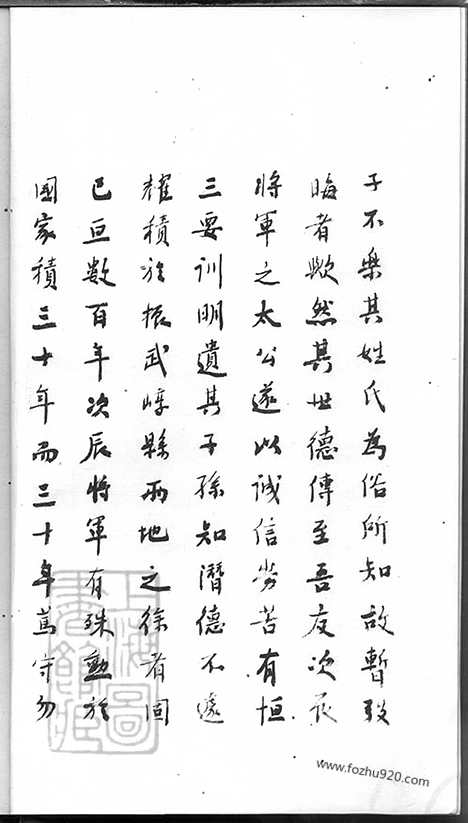 子不樂其姓氏為俗所知故暫致
晦者歟然其世德傳至吾友次辰
將軍之太公遂以誠信勞苦有恒
三要訓明遺其子孫知潛德不遽
耀積於振武崞縣兩地之徐者固
已亘數百年次辰將軍有殊勳於
國家積三十年而三十年篤守勿
上海圖
書館藏
www.fozhu920.com